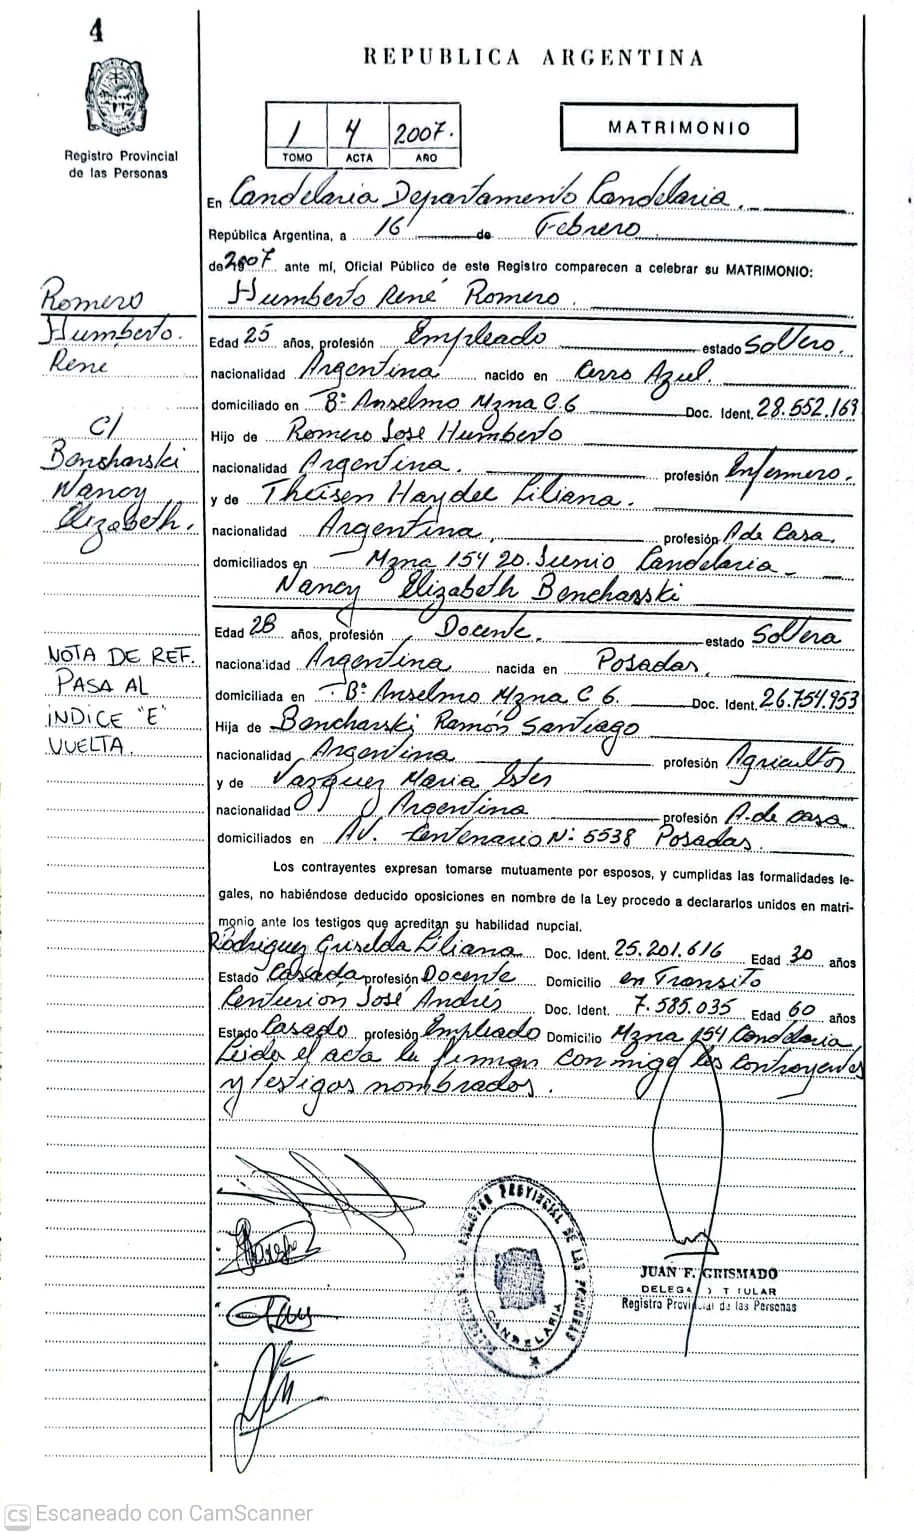 4
REPUBLICA ARGENTINA
MISIONES
Registro Provincial
de las Personas
1 4 2007.
TOMO ACTA AÑO
MATRIMONIO
En Candelaria Departamento Candelaria.
República Argentina, a 16 de Febrero
de 2007 ante mí, Oficial Público de este Registro comparecen a celebrar su MATRIMONIO:
Humberto René Romero
Romero
Humberto.
René
C/
Bencharski
Nancy
Elizabeth.
NOTA DE REF.
PASA AL
INDICE "E"
VUELTA.
Edad 25 años, profesión Empleado estado Soltero.
nacionalidad Argentina nacido en Cerro Azul.
domiciliado en Bº Anselmo Mzna C.6 Doc. Ident. 28.552.169
Hijo de Romero José Humberto
nacionalidad Argentina. profesión Enfermero.
y de Theisen Haydee Liliana.
nacionalidad Argentina. profesión A de Casa.
domiciliados en Mzna 154 20. Junio Candelaria
Nancy Elizabeth Bencharski
Edad 28 años, profesión Docente. estado Soltera
nacionalidad Argentina nacida en Posadas.
domiciliada en Bº Anselmo Mzna C 6. Doc. Ident. 26.754.953
Hija de Bencharski Ramón Santiago
nacionalidad Argentina profesión Agricultor
y de Vazquez Maria Ester
nacionalidad Argentina profesión A. de casa
domiciliados en AV. Centenario Nº 5538 Posadas.
Los contrayentes expresan tomarse mutuamente por esposos, y cumplidas las formalidades le-
gales, no habiéndose deducido oposiciones en nombre de la Ley procedo a declararlos unidos en matri-
monio ante los testigos que acreditan su habilidad nupcial.
Rodriguez Griselda Liliana Doc. Ident. 25.201.616 Edad 30 años
Estado Casada profesión Docente Domicilio en Transito
Centurión José Andrés Doc. Ident. 7.585.035 Edad 60 años
Estado Casado profesión Empleado Domicilio Mzna 154 Candelaria
Leida el acta la firman conmigo los contrayentes
y testigos nombrados.
REGISTRO PROVINCIAL DE LAS PERSONAS
CANDELARIA
JUAN F. GRISMADO
DELEGADO TITULAR
Registro Provincial de las Personas
CS Escaneado con CamScanner